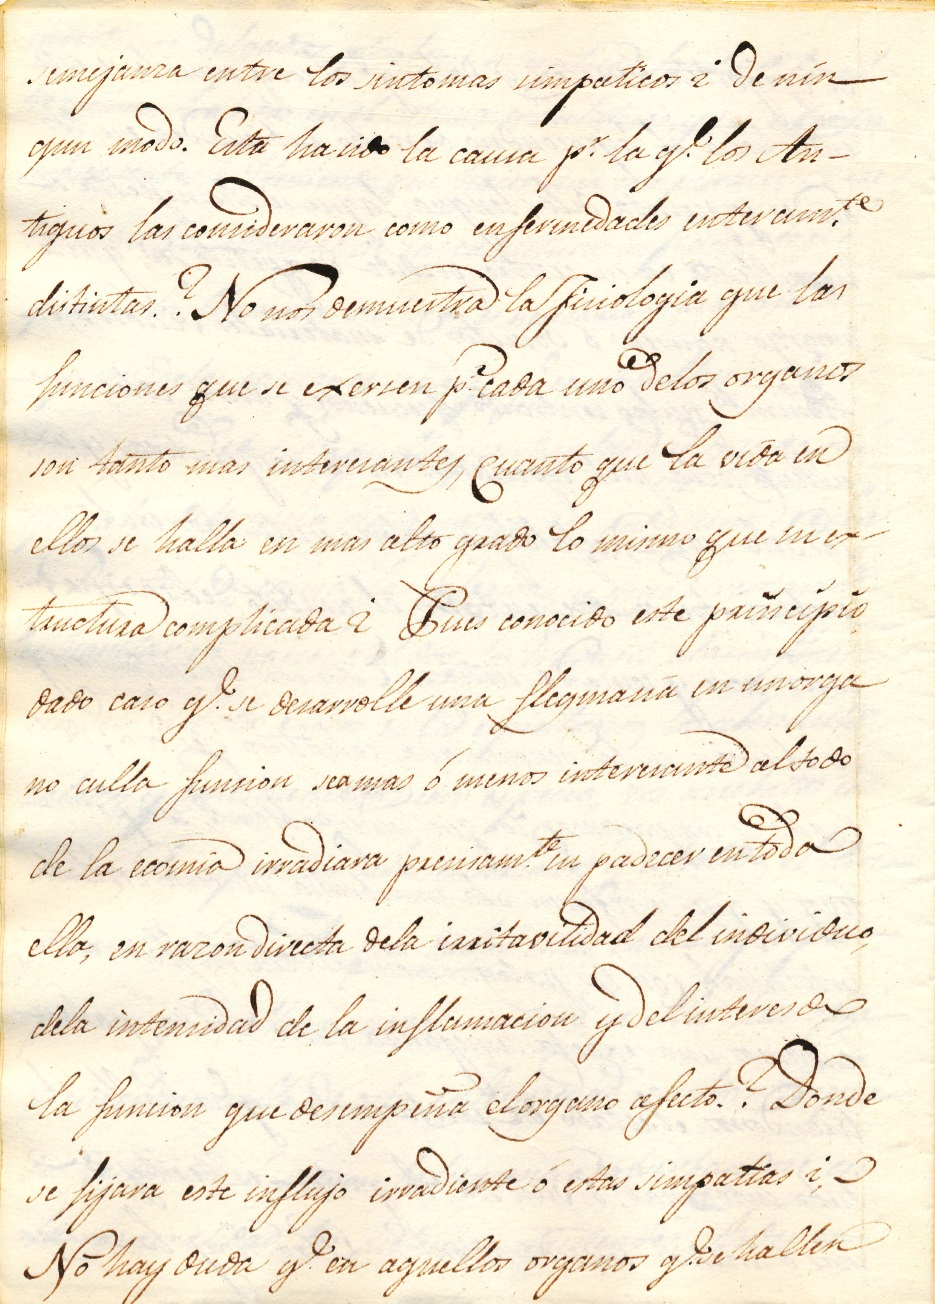 semejanza entre los sintomas simpaticos? De nin
gun modo. Esta ha sido la causa pr. la ql. los An-
tiguos las consideraron como enfermedades enteramte.
distintas.? No nos demuestra la Fisiologia que las
funciones que se exersen pr. cada uno de los organos
son tanto mas interesantes, Cuanto que la vida en
ellos se halla en mas alto grado lo mismo que su ex-
tructura complicada? Pues conocido este principio,
dado caso ql. se desarrolle una flegmasia en un orga
no culla funcion sea mas ó menos interesante al todo
de la ecomia irradiara precisamte. su padecer en toda
ella, en razon directa de la irritavilidad del individuo,
dela intensidad de la inflamacion y del interes de
la funcion que desempeña el organo afecto.? Donde
se fijara este influjo irradiente ó estas simpatias?,
No hay duda ql. en aquellos organos ql. se hallen